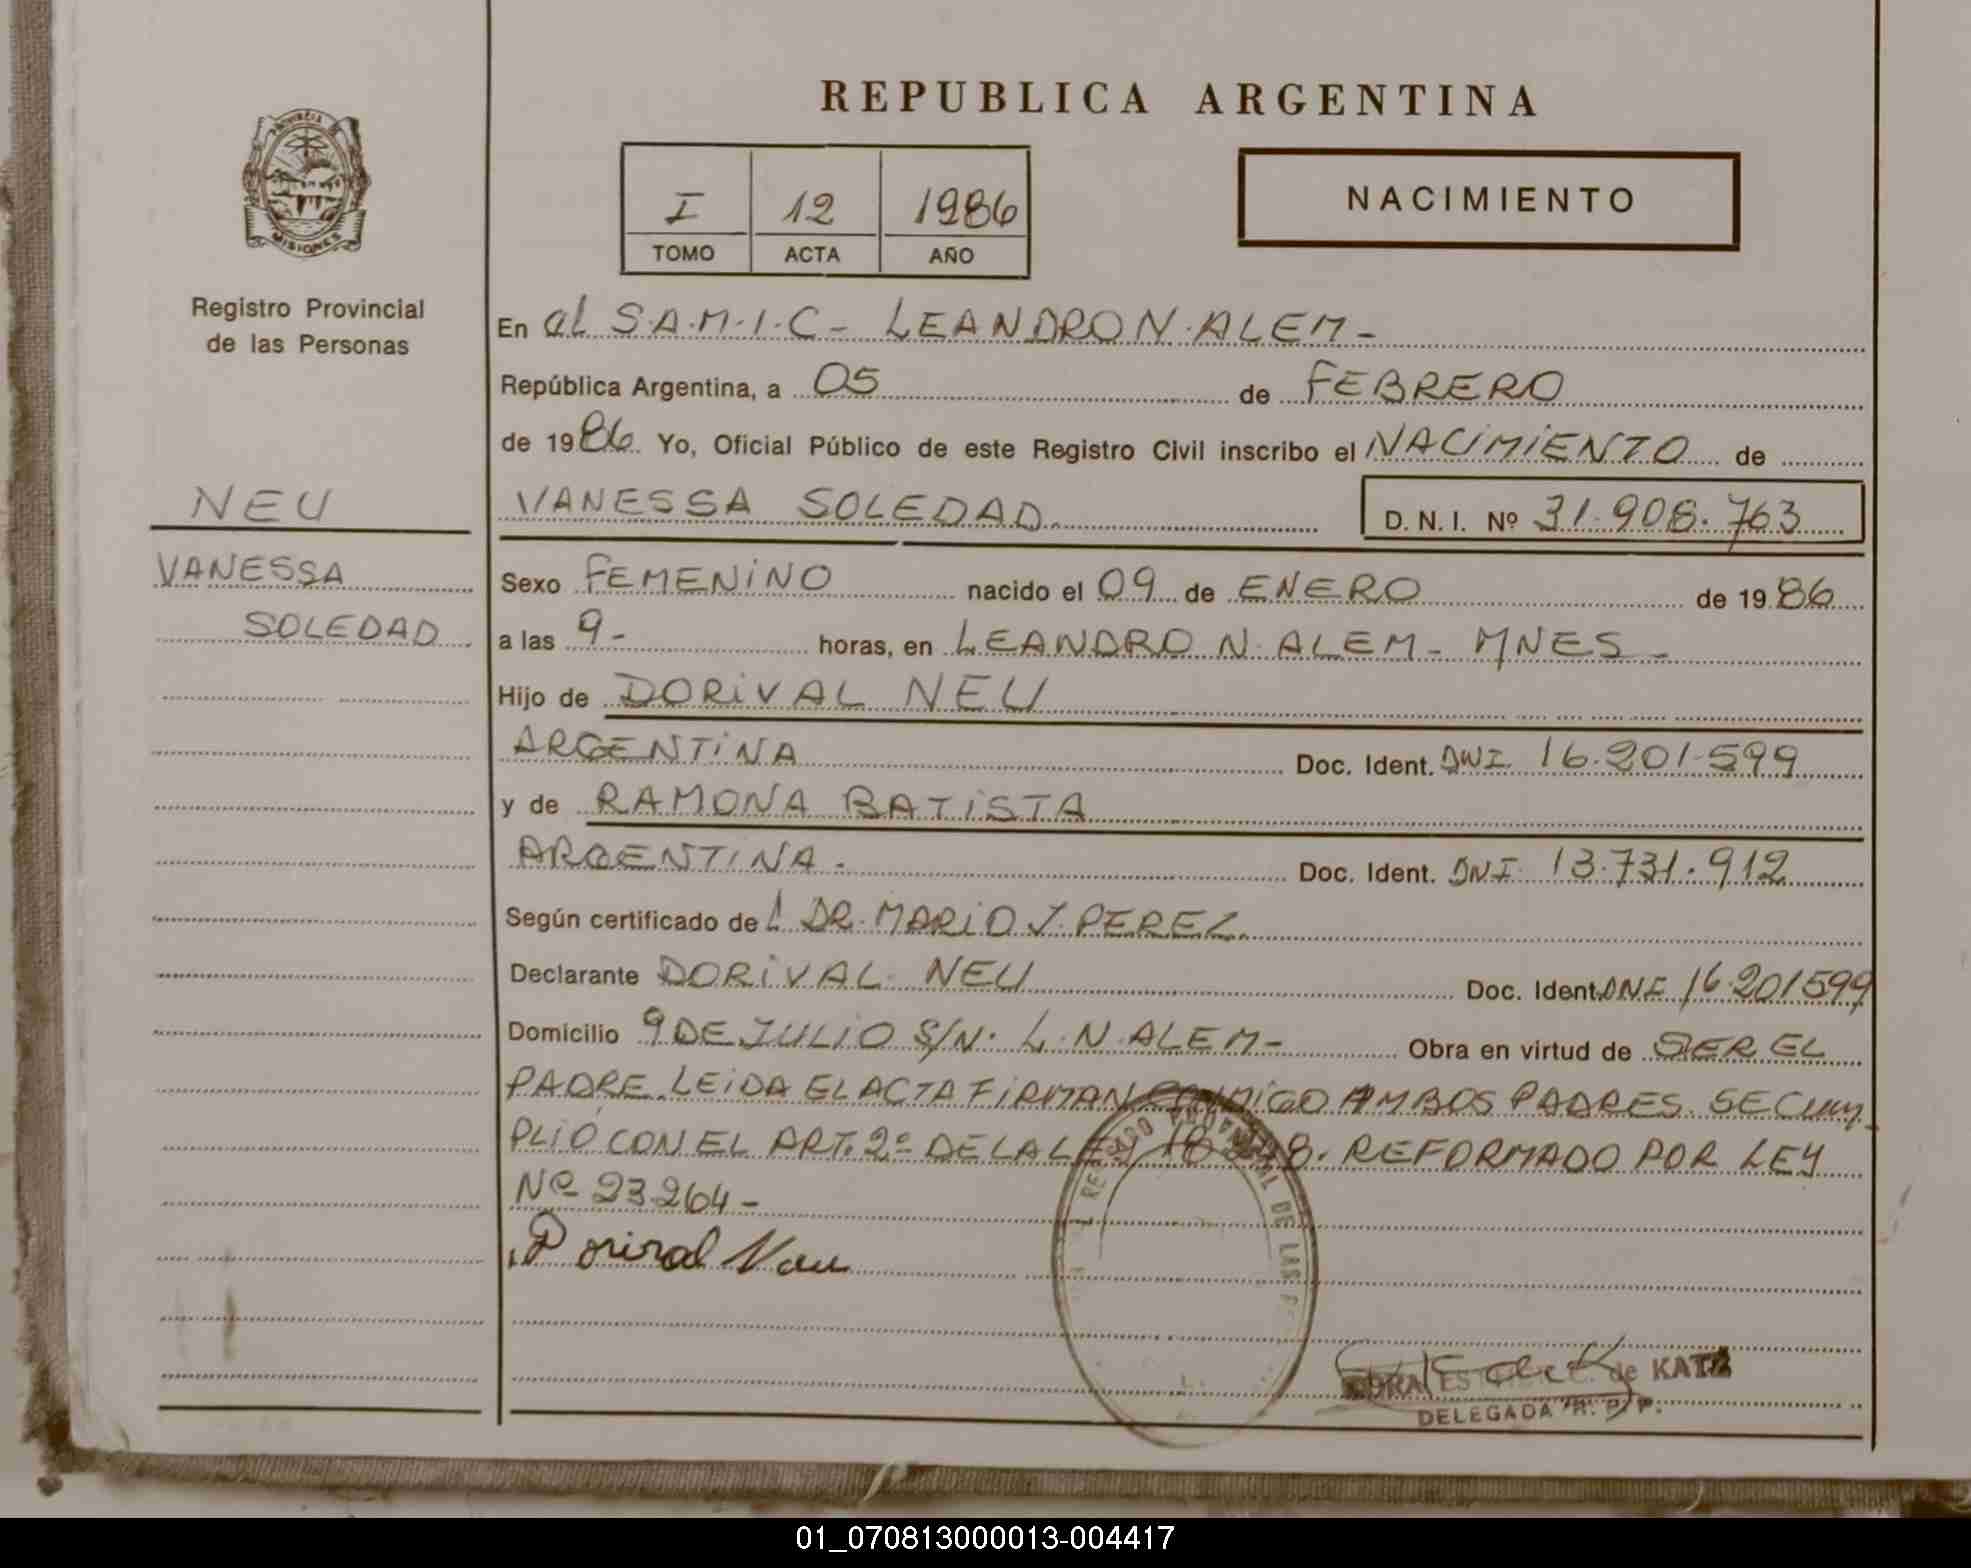 PROVINCIA DE
MISIONES
Registro Provincial
de las Personas
NEU
VANESSA
SOLEDAD
REPUBLICA ARGENTINA
I 12 1986
TOMO ACTA AÑO
NACIMIENTO
En al S.A.M.I.C- LEANDRO N. ALEM-
República Argentina, a 05 de FEBRERO
de 1986. Yo, Oficial Público de este Registro Civil inscribo el NACIMIENTO de
VANESSA SOLEDAD. D. N. I. Nº 31.908.763
Sexo FEMENINO nacido el 09 de ENERO de 1986
a las 9- horas, en LEANDRO N. ALEM- MNES-
Hijo de DORIVAL NEU
ARGENTINA Doc. Ident. DNI 16.201.599
y de RAMONA BATISTA
ARGENTINA. Doc. Ident. DNI. 13.731.912
Según certificado del DR. MARIO J. PEREZ.
Declarante DORIVAL NEU Doc. Ident. DNI 16.201599
Domicilio 9 DE JULIO S/N. L.N. ALEM- Obra en virtud de SER EL
PADRE. LEIDA EL ACTA FIRMAN CONMIGO AMBOS PADRES. SE CUM
PLIÓ CON EL ART. 2º DE LA LEY REFORMADO POR LEY
Nº 23.264-
Dorival Neu
DE LAS
de KATZ
DELEGADA R. P. P.
01_070813000013-004417